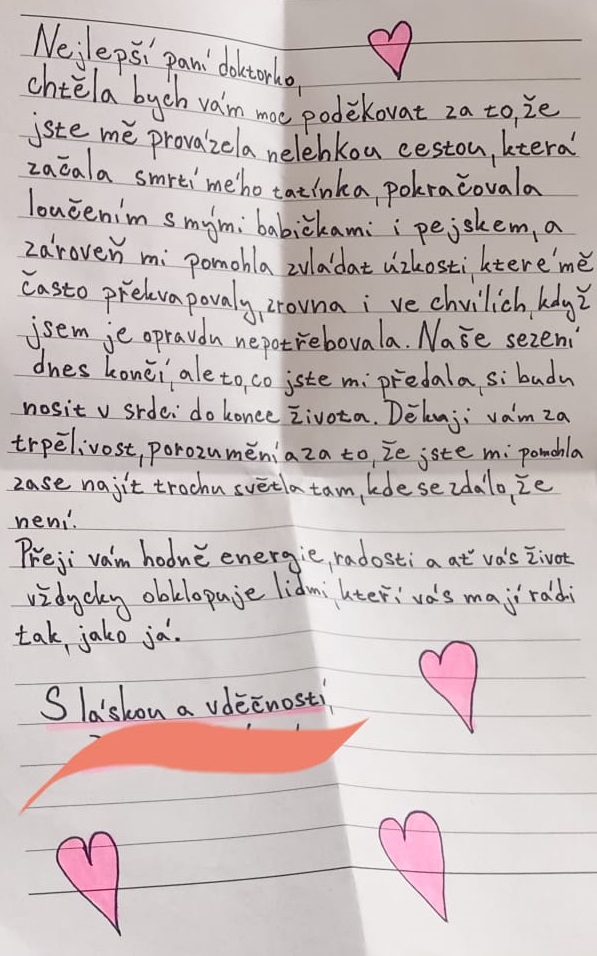 Nejlepší paní doktorko,
chtěla bych vám moc poděkovat za to, že
jste mě provázela nelehkou cestou, která
začala smrtí mého tatínka, pokračovala
loučením s mými babičkami i pejskem, a
zároveň mi pomohla zvládat úzkosti, které mě
často překvapovaly, zrovna i ve chvílích, když
jsem je opravdu nepotřebovala. Naše sezení
dnes končí, ale to, co jste mi předala, si budu
nosit v srdci do konce života. Děkuji vám za
trpělivost, porozumění a za to, že jste mi pomohla
zase najít trochu světla tam, kde se zdálo, že
není.
Přeji vám hodně energie, radosti a ať vás život
vždycky obklopuje lidmi, kteří vás mají rádi
tak, jako já.
S láskou a vděčností,